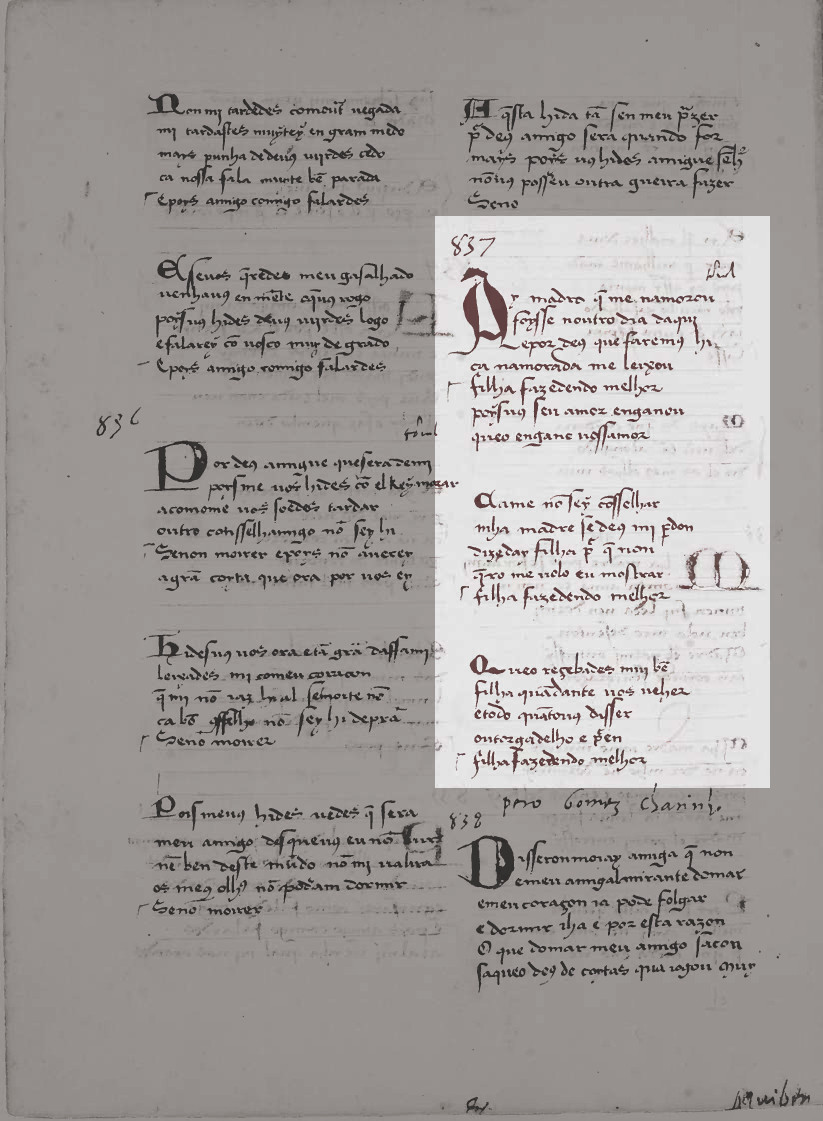 Non mi tardedes comout̃ uegada
mi tardastes muytey en gram medo
mays punha dedeuꝯ uijrdes cedo
ca nossa fala muyte bẽ parada
Epoys amigo comigo falardes
E seuos q̃redes meu gasalhado
uenhauꝯ en mẽte aqueuꝯ rogo
poysuꝯ hides deuꝯ uijrdes logo
efilarey cõ uosco muy de grado
Epoys amigo comigo falardes
836
Por deꝯ amigue quesera demi
poys me uos hides cõ el Rey morar
acomome uos soedes tardar
outro conselhamigo nõ sey hi
Senon moirer epoys nõ auerey
agrã coyta que ora por uos ey
Hidesuꝯ uos ora etã grã daffam
leixades mi comeu coraçon
q̃ mi nõ iaz hi al se morte nõ
nõ sey hi deprã
Senõ moirer
Pois meuꝯ hides uedes q̃ sera
meu amigo desqueuꝯ eu nõ
nẽ ben deste mũdo nõ mi ualira
os meꝯ olhꝯ nõ poderam dormir
Senõ moirer
E q̃sta hida tã sen meu prazer
p̃ deꝯ amigo sera quando for
mays poys uꝯ hides amigue
nõ uꝯ possen outra gueira fazer
Seno
837
Ay madre q̃ me namorou
foysse noutro dia daqui
epor deꝯ que faremꝯ hi
ca namorada me leixou
filha fazedendo melhor
poysuꝯ seu amor enganou
queo engane uossamor
Came nõ sey cõsselhar
mha madre se deꝯ mi p̃don
dizeday filha p̃ q̃ non
q̃ro me uolo eu mostrar
filha fazedendo melhor
M
Queo reçebades muy bẽ
filha quãdante uos ueher
etodo quãtouꝯ disser
outorgadelho e p̃ en
filha fazedendo melhor
pero Gomez Charinho
838
Disseronmoiay amiga q̃ non
e meu amigalmirante domar
emeu coraçon ia pode folgar
e dormir iha e por esta razon
O que domar meu amigo sacou
saqueo deꝯ de coytas